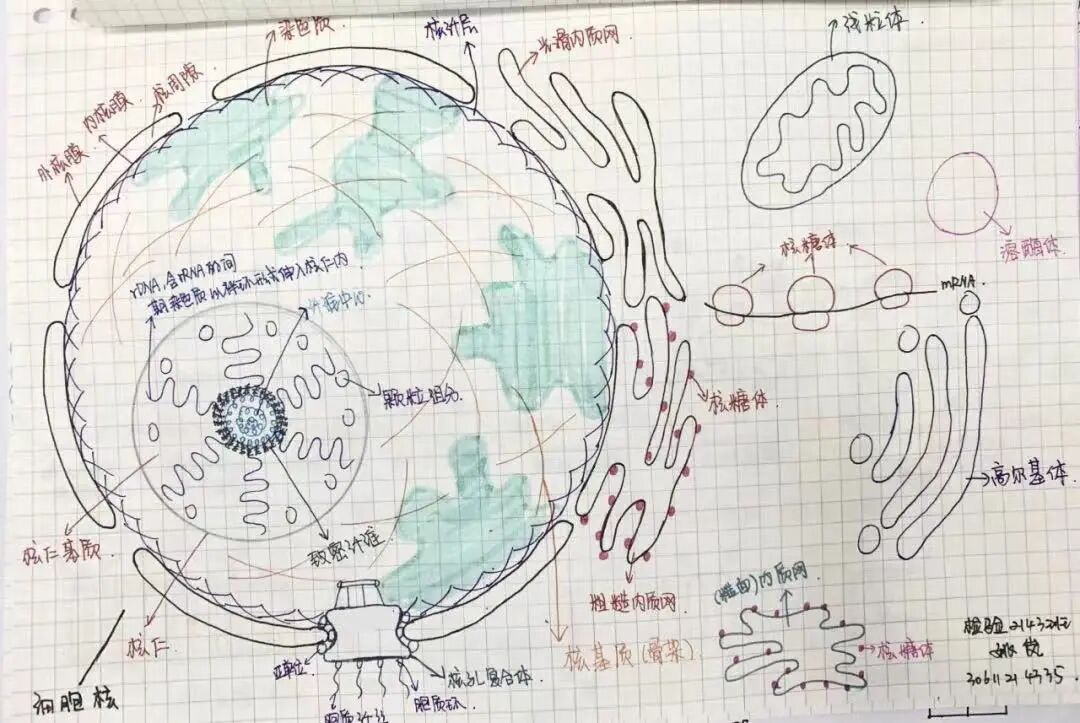 染色质
核纤层
光滑内质网
线粒体
核周隙
内核膜
外核膜
溶酶体
核糖体
mRNA
rDNA,含rRNA的间
期染色质以袢环形式伸入核仁内
纤维中心
颗粒组分
核糖体
高尔基体
核仁基质
致密纤维
粗糙内质网
(粗面)内质网
核糖体
核仁
核基质(骨架)
亚单位
核孔复合体
胞质环
胞质纤丝
细胞核
检验